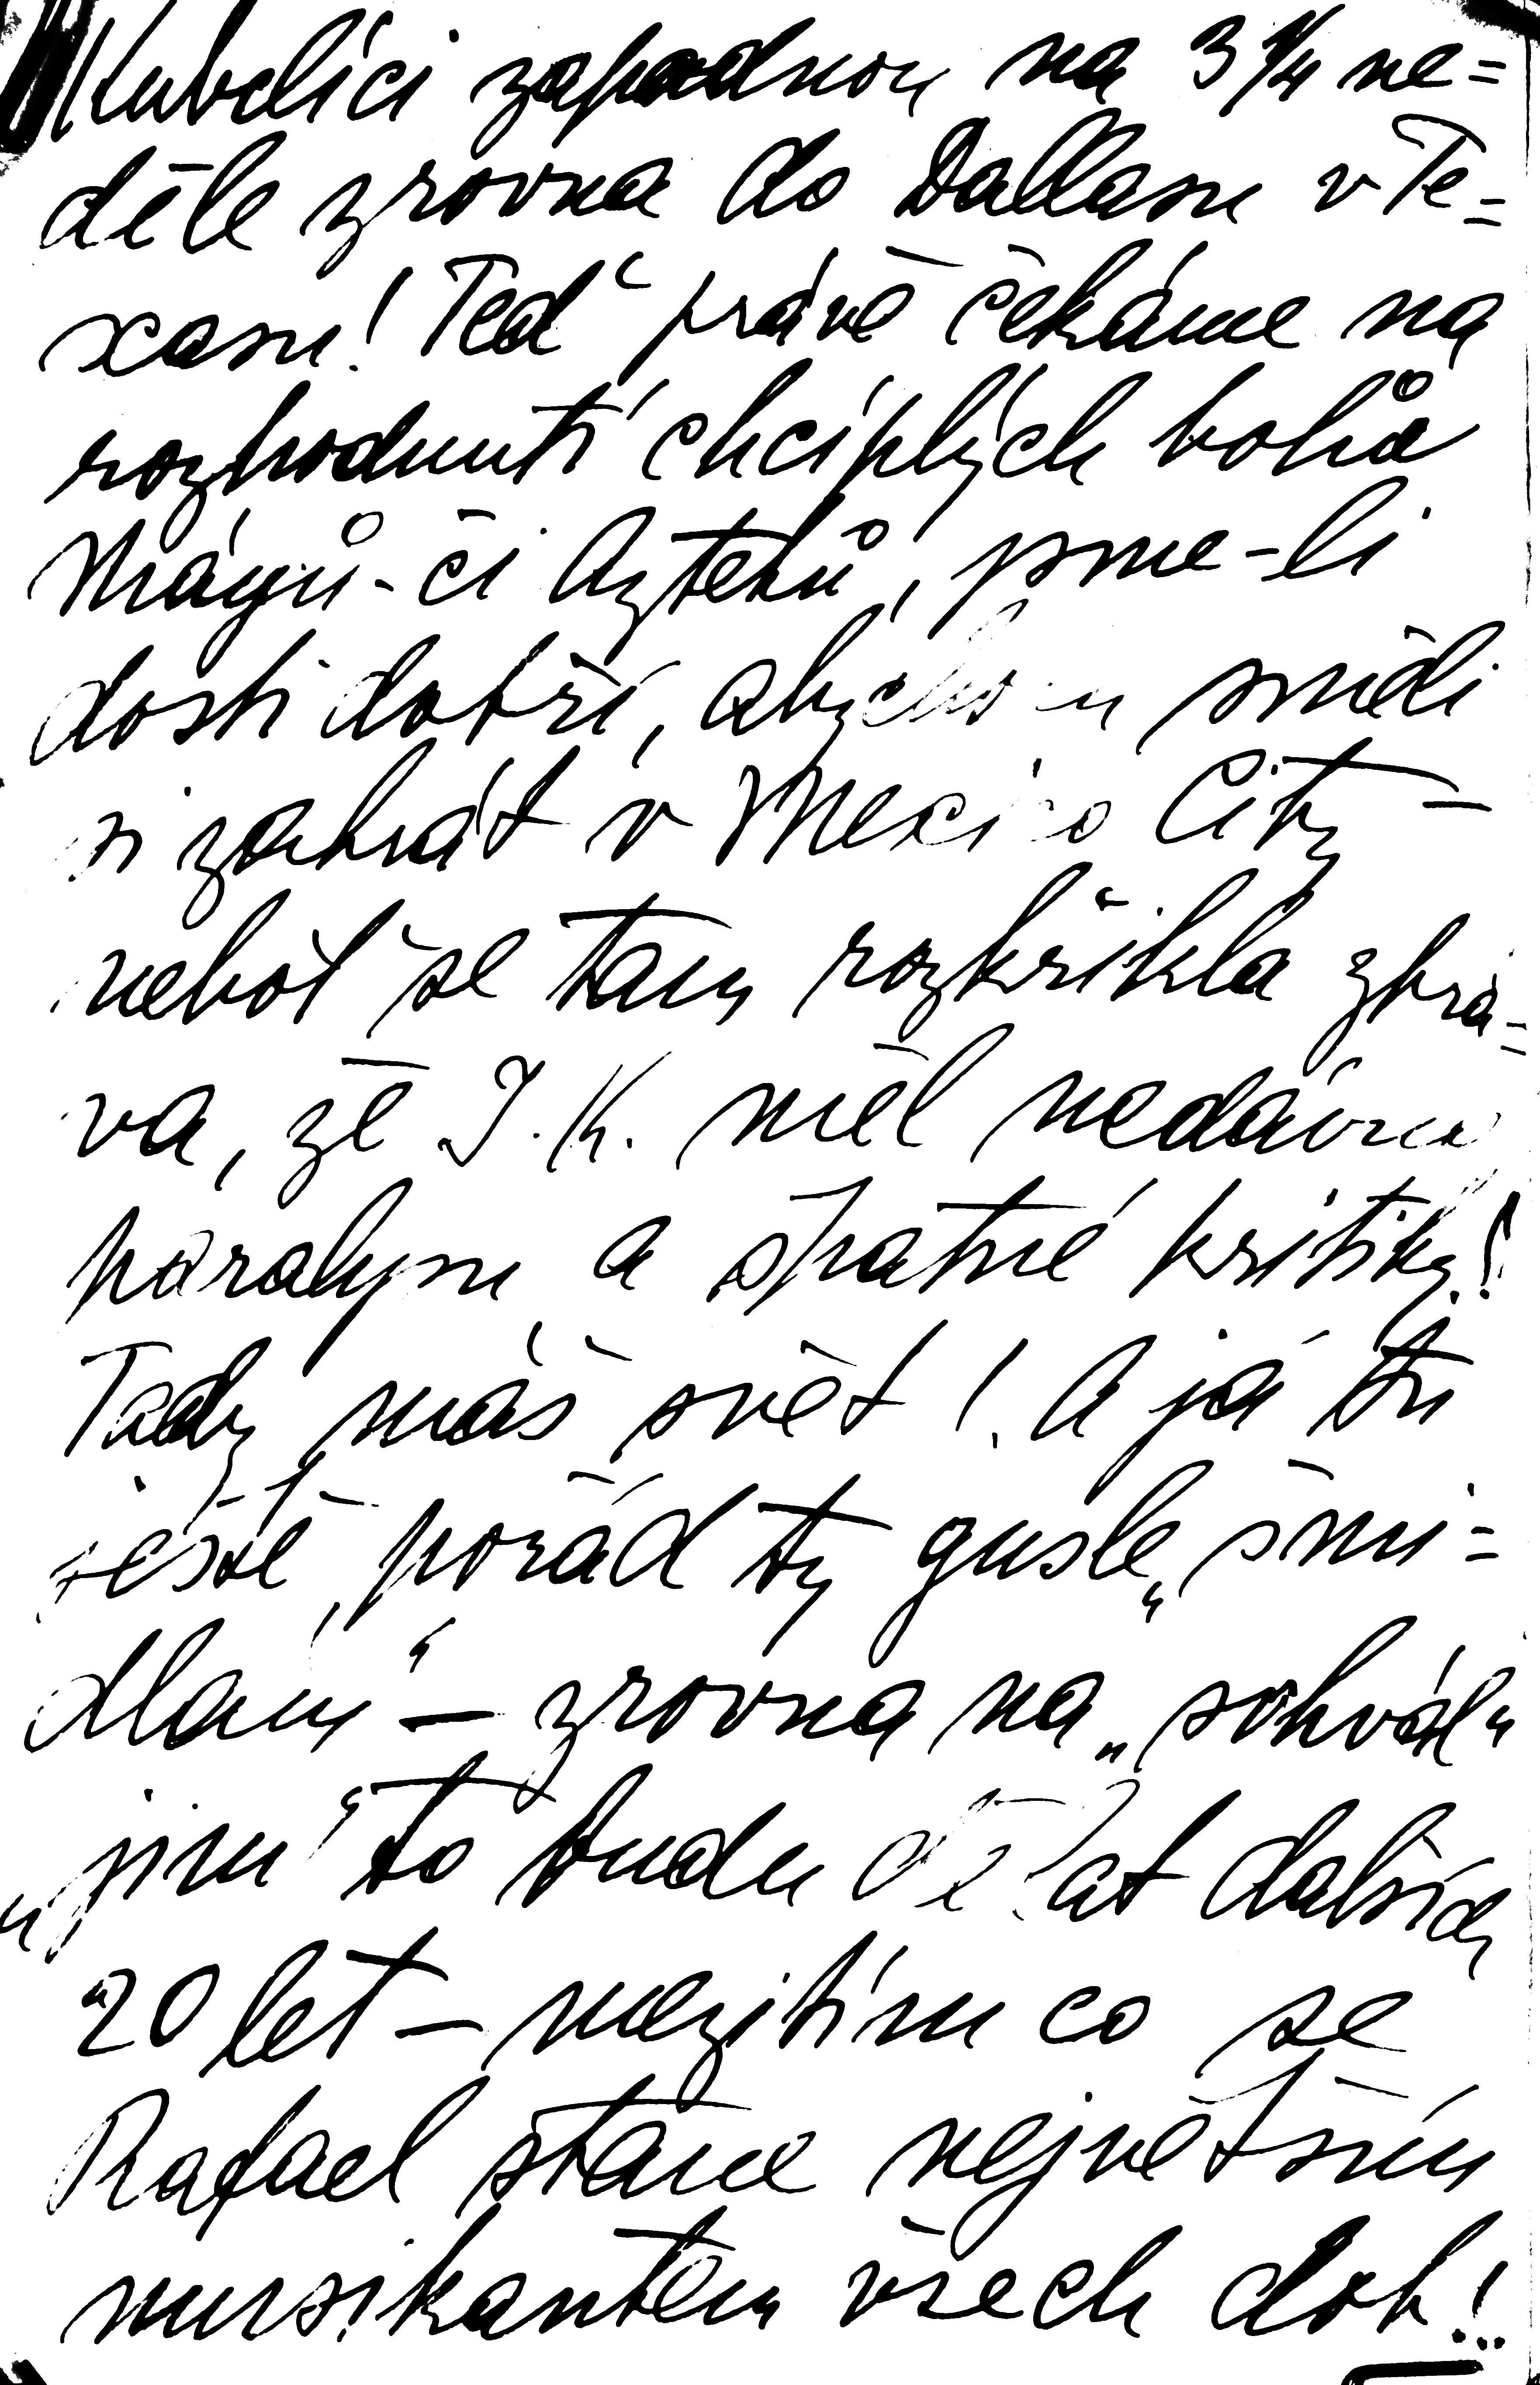 Kubelíci zapadnou na 3¼ ne=
děle zrovna do Dallasu v Te=
xasu! Teď právě čekáme na
rozhodnutí chcíplých bohů
Mágů - či Aztéků, jsme-li
dosti dobří, abychom směli
si zahrát v Mexico City —
neboť se tam rozkřikla zprá=
va, že J. K. měl nedávno
paralysu a špatné kritiky!
Tady máš svět! A já tu
ještě pořád ty gusle „šmi=
dlám“ — zrovna na „sohvál“
„jim“ to budu dělat dalších
20 let — mezitím co se
Rafael stane největším
muzikantem všech dob!..